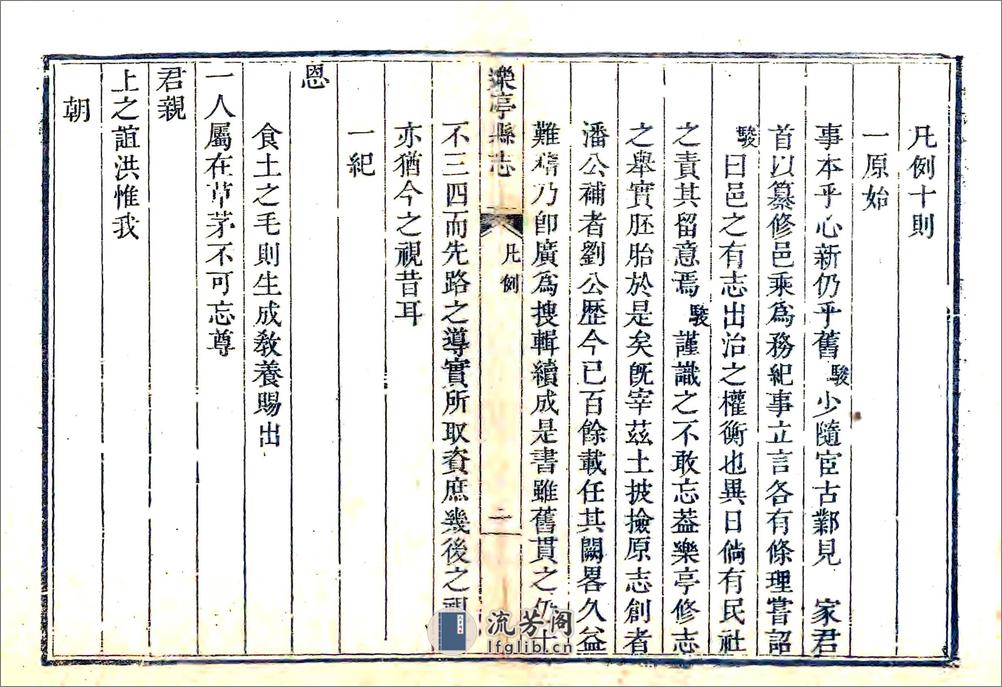 凡例十則
一原始
事本乎心新仍乎舊駿少隨宦古鄴見　家君
首以纂修邑乘爲務紀事立言各有條理嘗詔
駿曰邑之有志出治之權衡也異日倘有民社
之責其留意焉駿謹識之不敢忘葢樂亭修志
之舉實胚胎於是矣旣宰茲土披撿原志創者
潘公補者劉公歷今已百餘載任其闕畧久益
難稽乃卽廣爲搜輯續成是書雖舊貫之仍十
樂亭縣志　凡例　一
不三四而先路之導實所取資庶幾後之視
亦猶今之視昔耳
一紀
恩
食土之毛則生成敎養賜出
一人屬在草茅不可忘尊
君親
上之誼洪惟我
朝
流芳阁
lfglib.cn